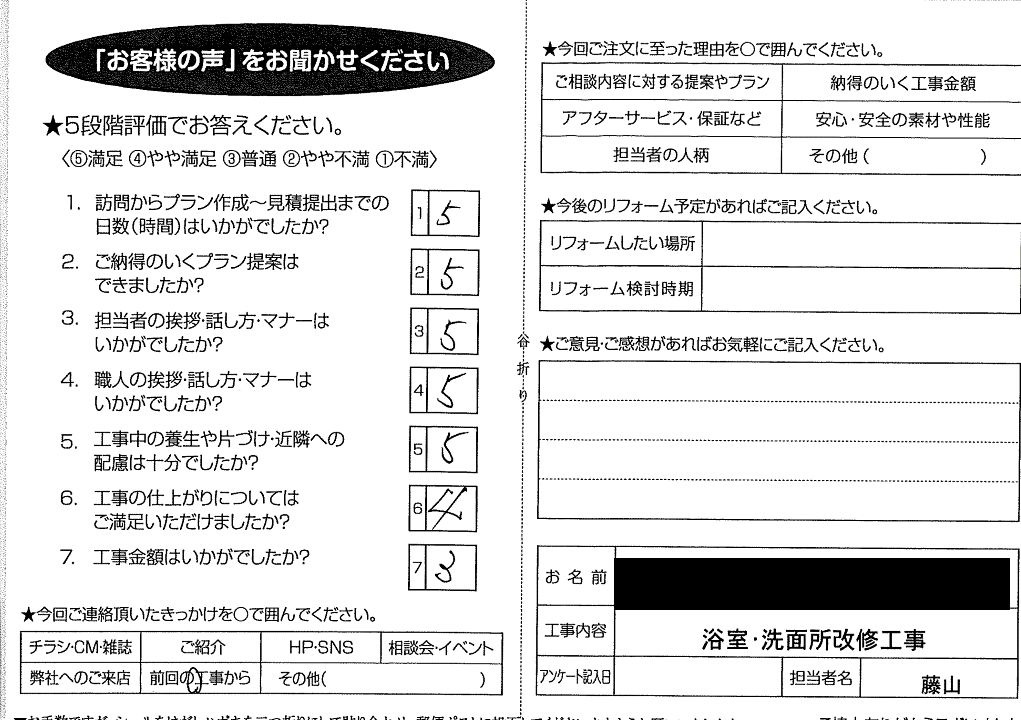 「お客様の声」をお聞かせください
★5段階評価でお答えください。
〈⑤満足 ④やや満足 ③普通 ②やや不満 ①不満〉
1. 訪問からプラン作成～見積提出までの
日数(時間)はいかがでしたか?
1 5
2. ご納得のいくプラン提案は
できましたか?
2 5
3. 担当者の挨拶・話し方・マナーは
いかがでしたか?
3 5
4. 職人の挨拶・話し方・マナーは
いかがでしたか?
4 5
5. 工事中の養生や片づけ・近隣への
配慮は十分でしたか?
5 5
6. 工事の仕上がりについては
ご満足いただけましたか?
6 4
7. 工事金額はいかがでしたか?
7 3
★今回ご連絡頂いたきっかけを○で囲んでください。
チラシ・CM・雑誌 ご紹介 HP・SNS 相談会・イベント
弊社へのご来店 前回の工事から その他( )
谷折り
★今回ご注文に至った理由を○で囲んでください。
ご相談内容に対する提案やプラン 納得のいく工事金額
アフターサービス・保証など 安心・安全の素材や性能
担当者の人柄 その他( )
★今後のリフォーム予定があればご記入ください。
リフォームしたい場所
リフォーム検討時期
★ご意見・ご感想があればお気軽にご記入ください。
お名前
工事内容 浴室・洗面所改修工事
アンケート記入日 担当者名 藤山